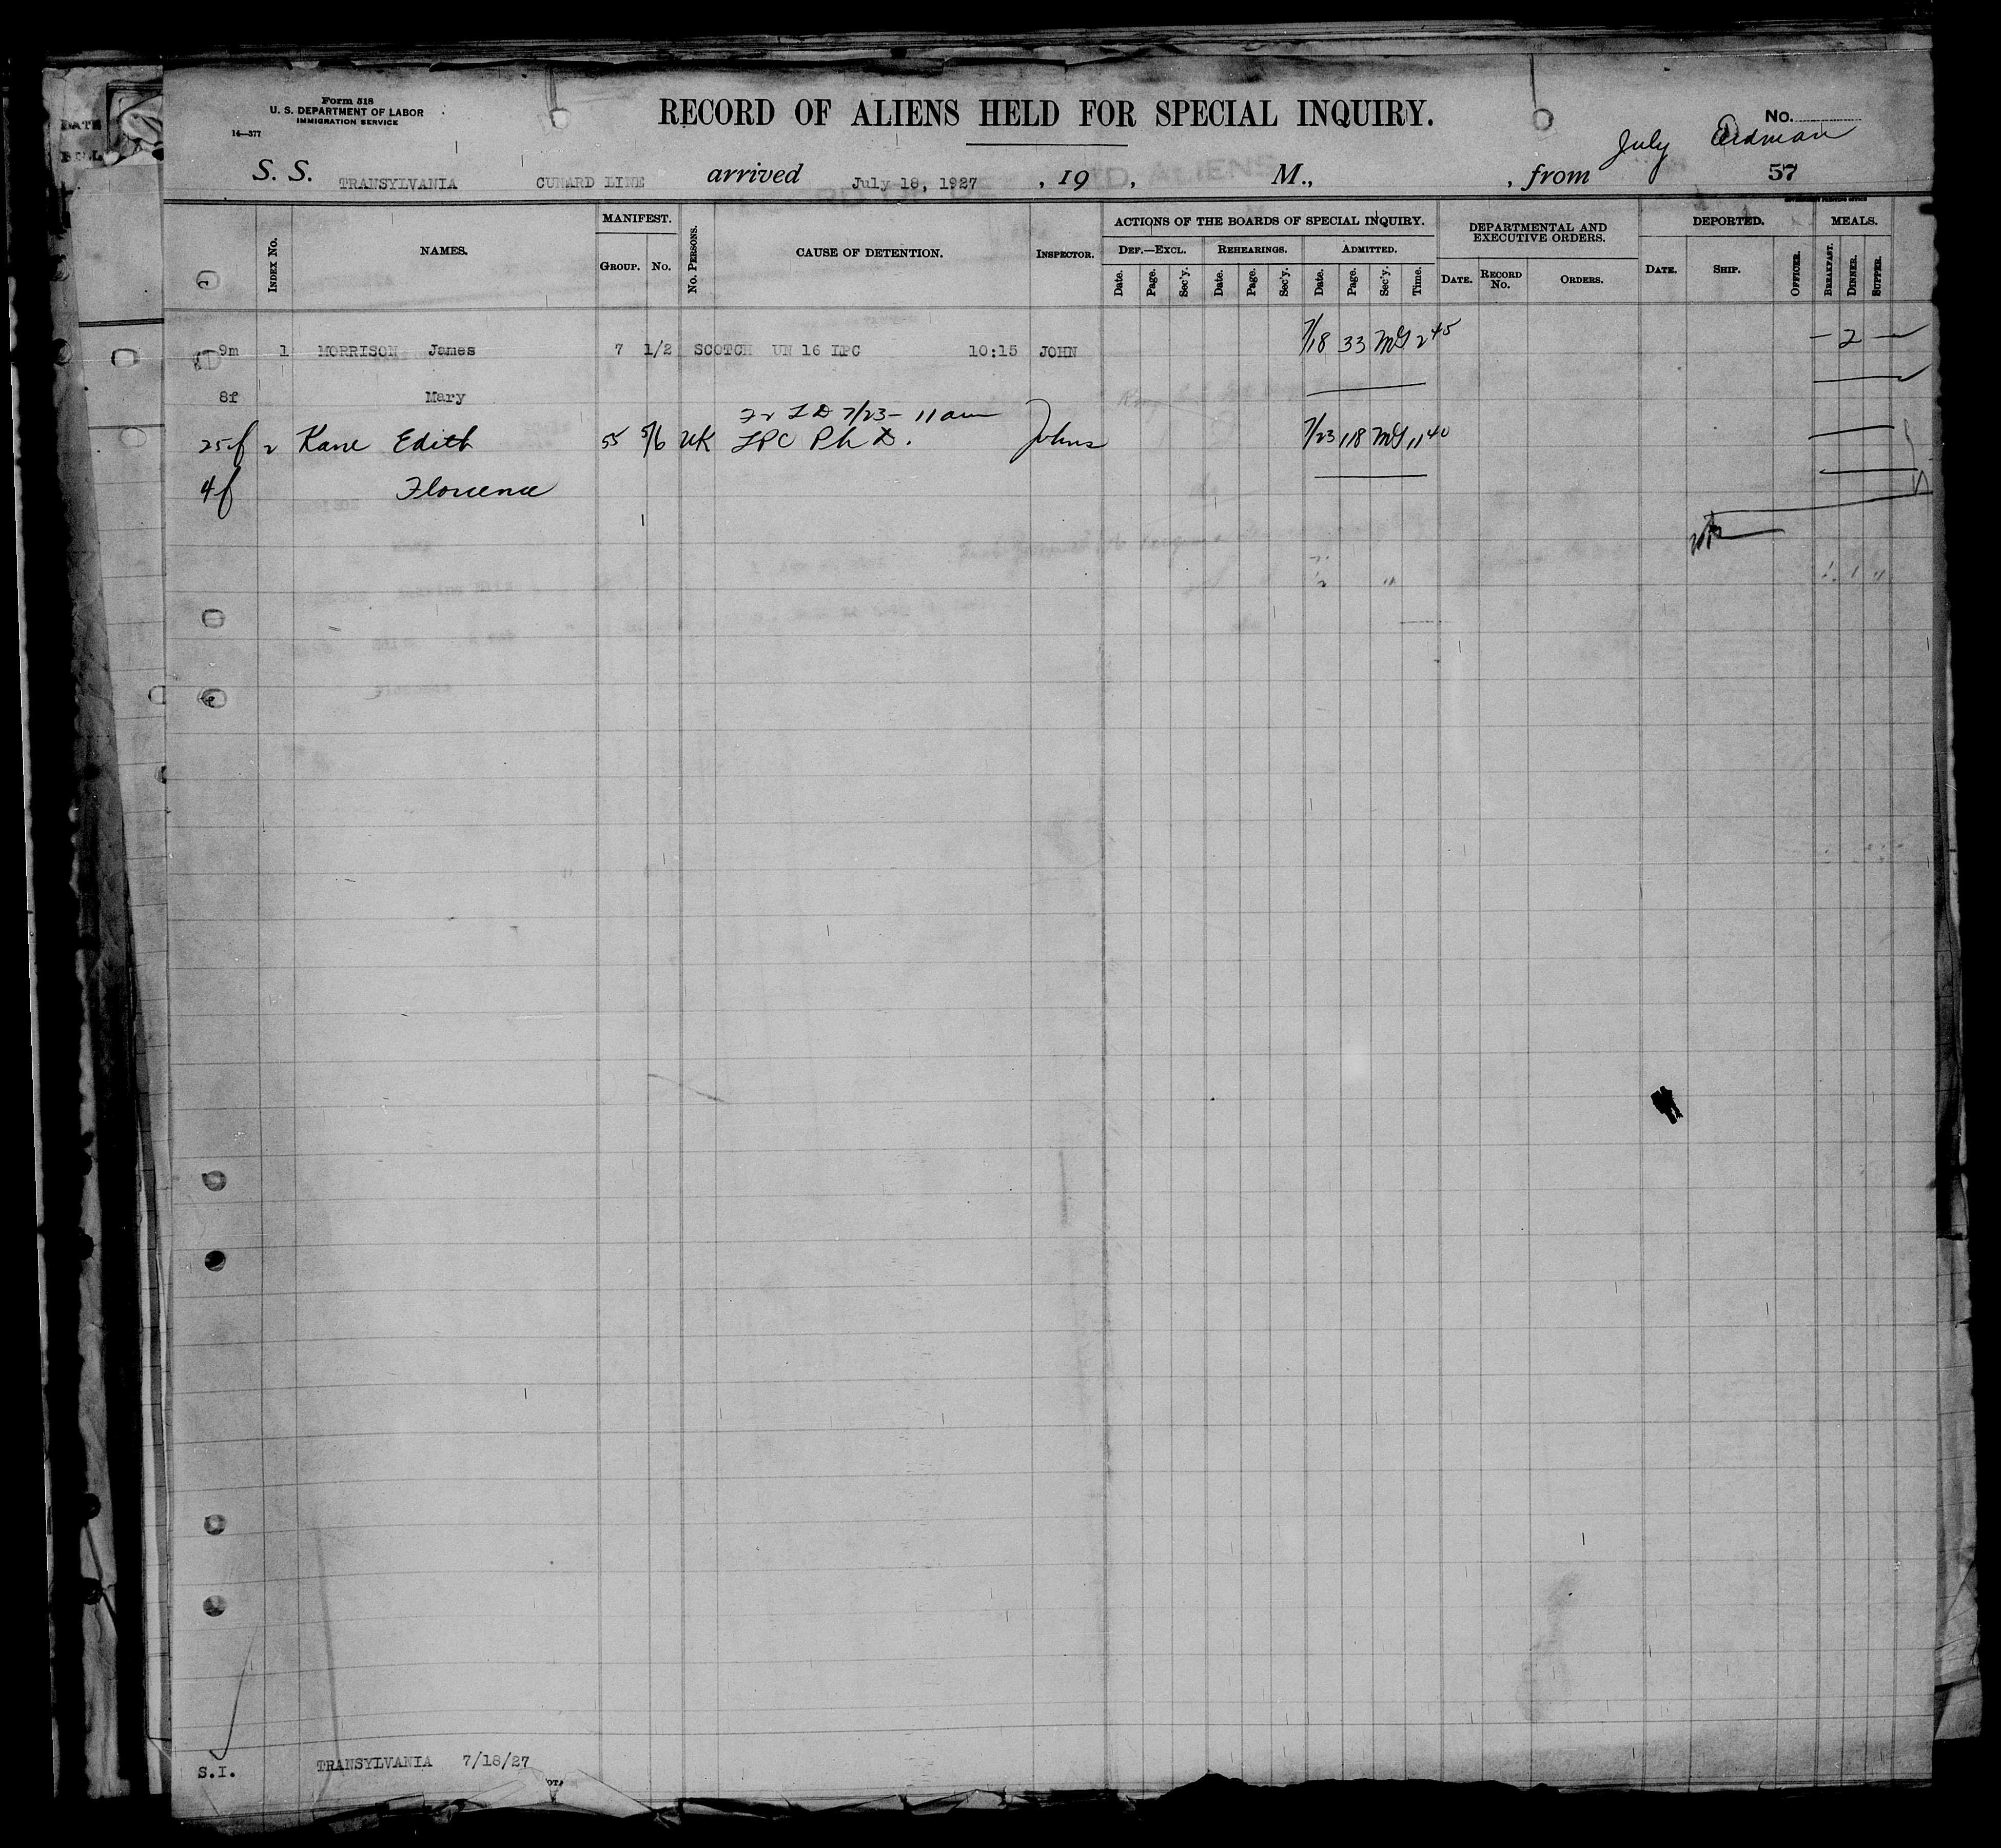 Form 518
U. S. DEPARTMENT OF LABOR
IMMIGRATION SERVICE
14—377
RECORD OF ALIENS HELD FOR SPECIAL INQUIRY.
No.
July Erdman
S. S. TRANSYLVANIA CUNARD LINE arrived July 18, 1927 , 19 , M., , from 57
INDEX NO. NAMES. MANIFEST. GROUP. NO. NO. PERSONS. CAUSE OF DETENTION. INSPECTOR. ACTIONS OF THE BOARDS OF SPECIAL INQUIRY. DEPARTMENTAL AND EXECUTIVE ORDERS. DEPORTED. MEALS.
DEF.—EXCL. REHEARINGS. ADMITTED.
Date. Page. Sec'y. Date. Page. Sec'y. Date. Page. Sec'y. Time. DATE. RECORD NO. ORDERS. DATE. SHIP. OFFICER. BREAKFAST. DINNER. SUPPER.
9m 1 MORRISON James 7 1/2 SCOTCH UN 16 LPC 10:15 JOHN 7/18 33 McG 2 45 — 2 —
8f Mary
Fr T D 7/23 - 11 am
25f 2 Kane Edith 55 5/6 UK LPC Ph D. Johns 7/23 118 McG 11 40
4f Florence
S.I. TRANSYLVANIA 7/18/27